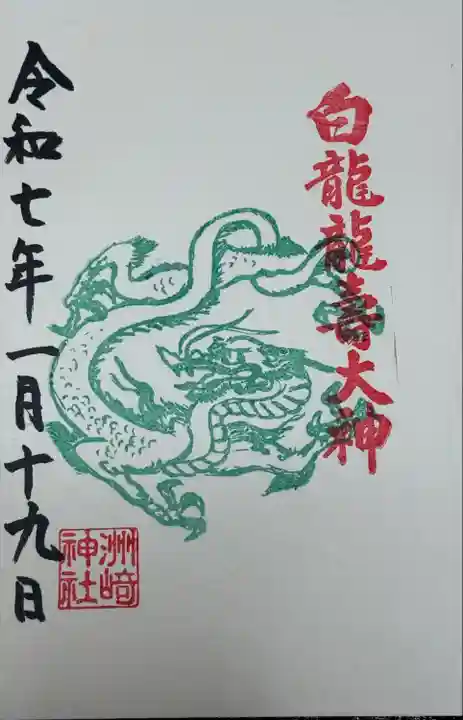 白龍龍壽大神
令和七年一月十九日
洲﨑
神社